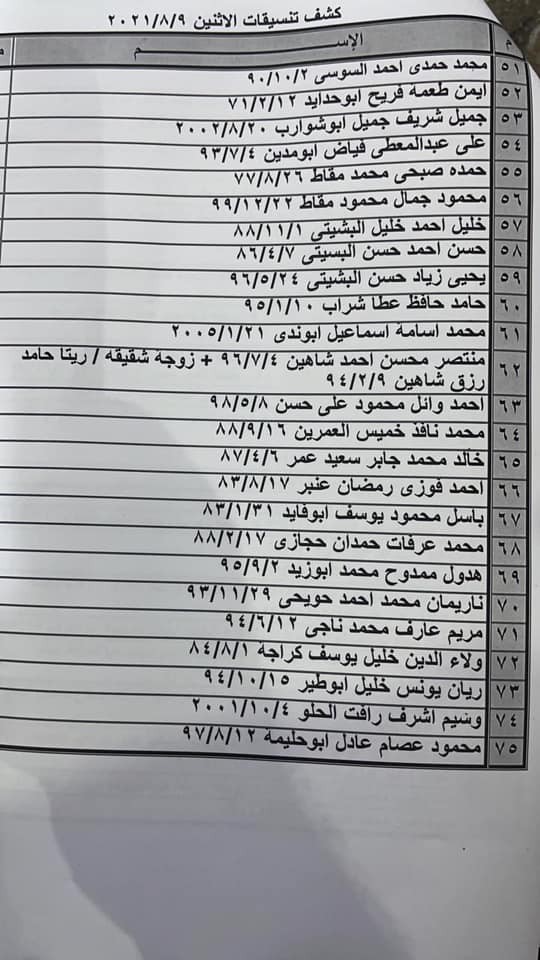 كشف تنسيقات الاثنين ٢٠٢١/٨/٩
م الإســـــــــــــــــم م
٥١ محمد حمدى احمد السوسى ٩٠/١٠/٢
٥٢ ايمن طعمة فريح ابوحدايد ٧١/٢/١٢
٥٣ جميل شريف جميل ابوشوارب ٢٠٠٢/٨/٢٠
٥٤ على عبدالمعطى فياض ابومدين ٩٣/٧/٤
٥٥ حمده صبحى محمد مقاط ٧٧/٨/٢٦
٥٦ محمود جمال محمود مقاط ٩٩/١٢/٢٢
٥٧ خليل احمد خليل البشيتى ٨٨/١١/١
٥٨ حسن احمد حسن البسيتى ٨٦/٤/٧
٥٩ يحيى زياد حسن البشيتى ٩٦/٥/٢٤
٦٠ حامد حافظ عطا شراب ٩٥/١/١٠
٦١ محمد اسامة اسماعيل ابوندى ٢٠٠٥/١/٢١
٦٢ منتصر محسن احمد شاهين ٩٦/٧/٤ + زوجة شقيقه / ريتا حامد
رزق شاهين ٩٤/٢/٩
٦٣ احمد وائل محمود على حسن ٩٨/٥/٨
٦٤ محمد نافذ خميس العمرين ٨٨/٩/١٦
٦٥ خالد محمد جابر سعيد عمر ٨٧/٤/٦
٦٦ احمد فوزى رمضان عنبر ٨٣/٨/١٧
٦٧ باسل محمود يوسف ابوفايد ٨٣/١/٣١
٦٨ محمد عرفات حمدان حجازى ٨٨/٢/١٧
٦٩ هدول ممدوح محمد ابوزيد ٩٥/٩/٢
٧٠ ناريمان محمد احمد حويحى ٩٣/١١/٢٩
٧١ مريم عارف محمد ناجى ٩٤/٦/١٢
٧٢ ولاء الدين خليل يوسف كراجة ٨٤/٨/١
٧٣ ريان يونس خليل ابوطير ٩٤/١٠/١٥
٧٤ وسيم اشرف رافت الحلو ٢٠٠١/١٠/٤
٧٥ محمود عصام عادل ابوحليمة ٩٧/٨/١٢